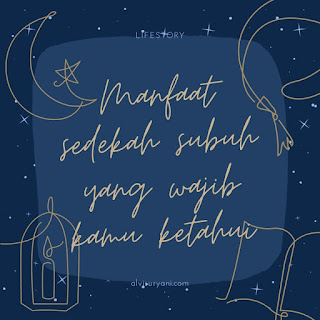 LIFESTORY
Manfaat
sedekah subuh
yang wajib
kamu ketahui
alvisuryani.com